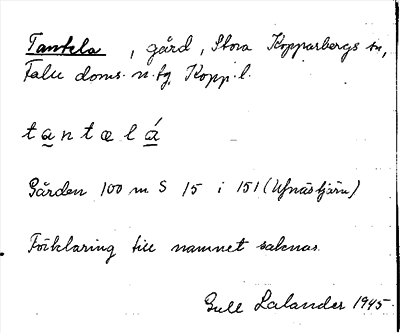 Tantla, gård, Stora Kopparbergs sn,
Falu doms. n. tg. Kopp. l.
tantelá
Gården 100 m S 15 i 151 (Ufnäs tjärn)
Förklaring till namnet saknas.
Gull Lalander 1945.